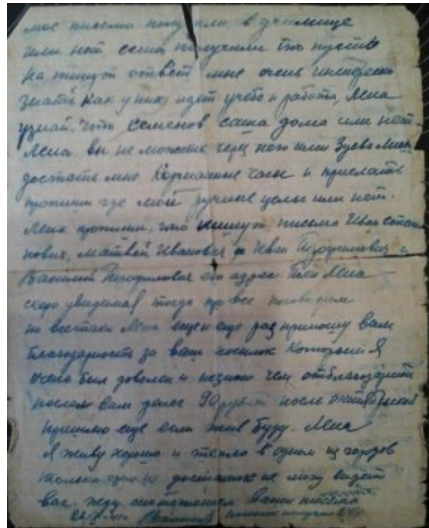 мое письмо получили в училище
или нет если получили то пусть
напишут ответ мне очень интересно
знать как у них идет учеба и работа, Леля
узнай что Семенов саша дома или нет
Леля вы не можете через него или Зуева
достать мне Карманные часы и прислать
пропиши где мои ручные целы или нет.
Леля пропиши, что пишут письма Иван
Матвей Иванович и Иван
Василий его адрес Леля
скоро увидимся тогда про все поговорим
но всетаки Леля еще и еще раз приношу вам
благодарность за ваш посылок Которыми Я
очень был доволен и незнаю чем отблагодарить
послал вам денег 90 рублей после
пришлю еще если жив буду. Леля
Я живу хорошо и тепло в одном из городов
только один недостаток не могу видеть
вас жду с нетерпением ваши письма